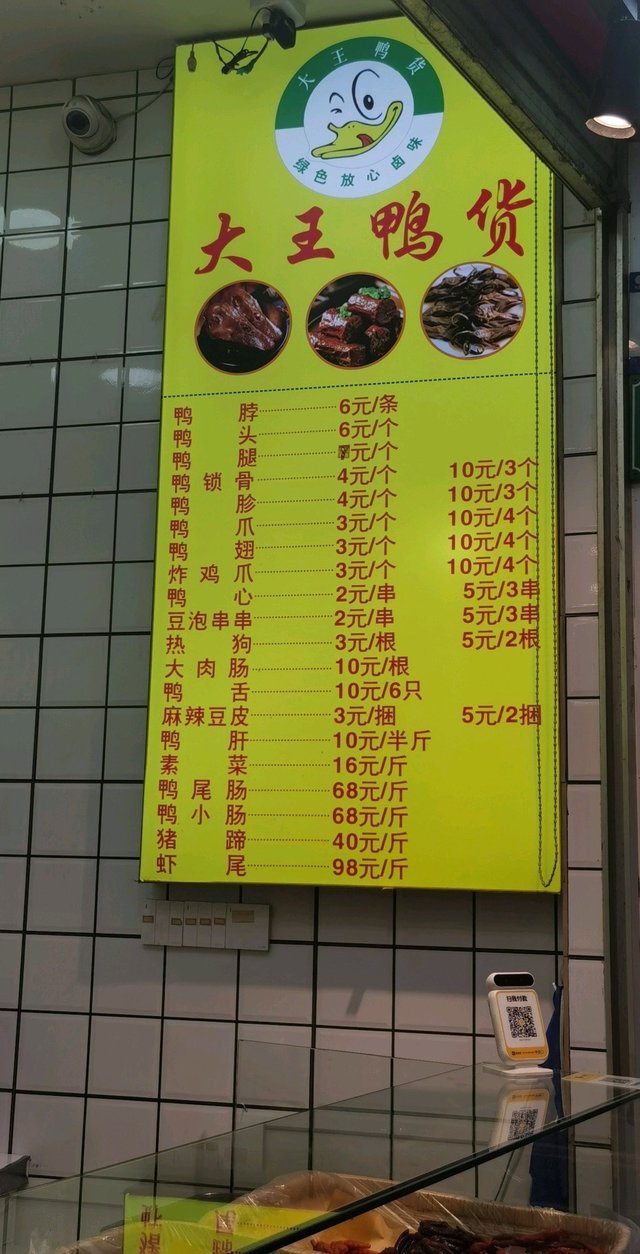 大王鸭货
绿色放心卤味
大王鸭货
鸭脖 6元/条
鸭头 6元/个
鸭腿 元/个
鸭锁骨 4元/个 10元/3个
鸭胗 4元/个 10元/3个
鸭爪 3元/个 10元/4个
鸭翅 3元/个 10元/4个
炸鸡爪 3元/个 10元/4个
鸭心 2元/串 5元/3串
豆泡串串 2元/串 5元/3串
热狗 3元/根 5元/2根
大肉肠 10元/根
鸭舌 10元/6只
麻辣豆皮 3元/捆 5元/2捆
鸭肝 10元/半斤
素菜 16元/斤
鸭尾肠 68元/斤
鸭小肠 68元/斤
猪蹄 40元/斤
虾尾 98元/斤
扫我付款